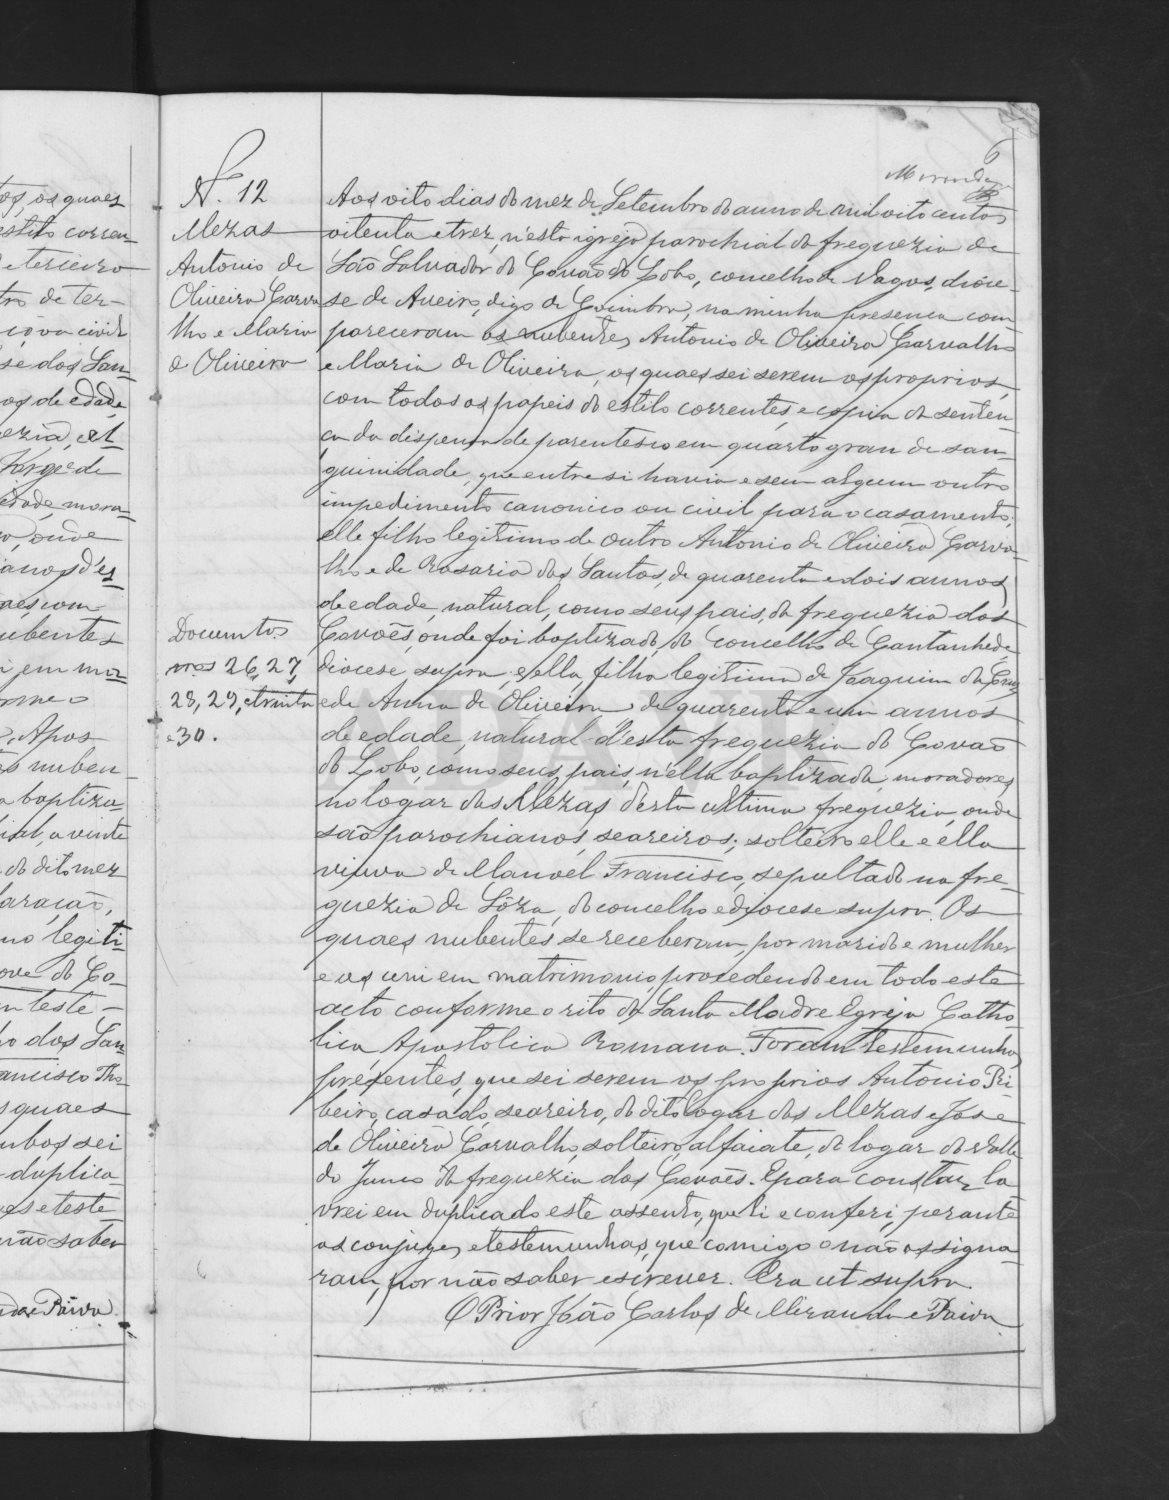 6
Miranda
N.º 12
Mezas
Antonio de
Oliveira Carva
lho e Maria
de Oliveira
Aos oito dias do mez de Setembro do anno de mil oito centos
oitenta e trez, n'esta igreja parochial da freguezia de
São Salvador do Covão do Lobo, concelho de Vagos, dioce-
se de Aveiro, digo de Coimbra, na minha presença com-
pareceram os nubentes, Antonio de Oliveira Carvalho
e Maria de Oliveira, os quaes sei serem os proprios,
com todos os papeis do estilo correntes, e copia da senten-
ça da dispensa de parentesco em quarto grau de san-
guinidade, que entre si havia e sem algum outro
impedimento canonico ou civil para o casamento;
elle filho legitimo de outro Antonio de Oliveira Carva-
lho e de Rosaria dos Santos, de quarenta e dois annos
de edade, natural, como seus pais, da freguezia dos
Covões, onde foi baptizado, do concelho de Cantanhede
diocese supra, e ella, filha legitima de Joaquim da Cruz
e de Anna de Oliveira de quarenta e um annos
de edade, natural d'esta freguezia do Covão
do Lobo, como seus pais, n'ella baptizada, moradores
no logar das Mezas, d'esta ultima freguezia, onde
são parochianos, seareiros; solteiro elle e ella
viuva de Manoel Francisco, sepultado na fre-
guezia de Sôza, do concelho e diocese supra. Os
quaes nubentes se receberam por marido e mulher
e os uni em matrimonio, procedendo em todo este
acto conforme o rito da Santa Madre Egreja Catho-
lica, Apostolica Romana. Foram testemunhas
presentes, que sei serem os proprios Antonio Ri
beiro, casado, seareiro, do dito logar das Mezas e José
de Oliveira Carvalho, solteiro, alfaiate, do logar do Valle
do Junco da freguezia dos Covões. E para constar la
vrei em duplicado este assento, que li e conferi, perante
os conjuges, e testemunhas, que comigo o não assigna-
ram, por não saber escrever. Era ut supra
O Prior João Carlos de Miranda e Paiva
Documtos
nros 26, 27,
28, 29, e trinta
e 30.
os quaes
estilo corren-
e terceiro
de ter-
civil
se dos San-
os de edade
Jorge de
edade, mora-
onde
annos d'es
com
nubentes
Apos
nuben-
baptiza
a vinte
do dito mez
no legiti
do Co-
teste-
dos San
ancisco Tho-
quaes
sei
duplica-
e teste
não saber
e Paiva